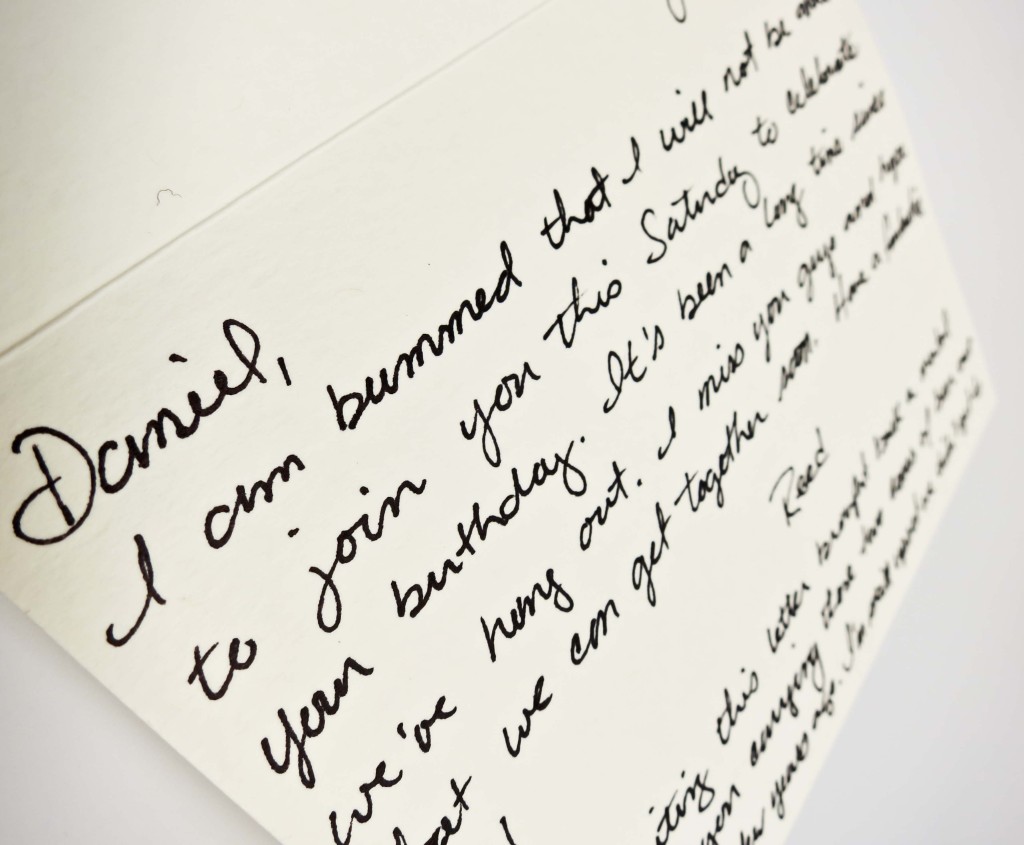 Daniel,
I am bummed that I will not be
to join you this Saturday to celebrate
your birthday. It's been a long time since
we've hung out. I miss you guys and hope
that we can get together soon. Have a
Reed
this letter brought back a
carrying those two boxes of
years ago. I'm